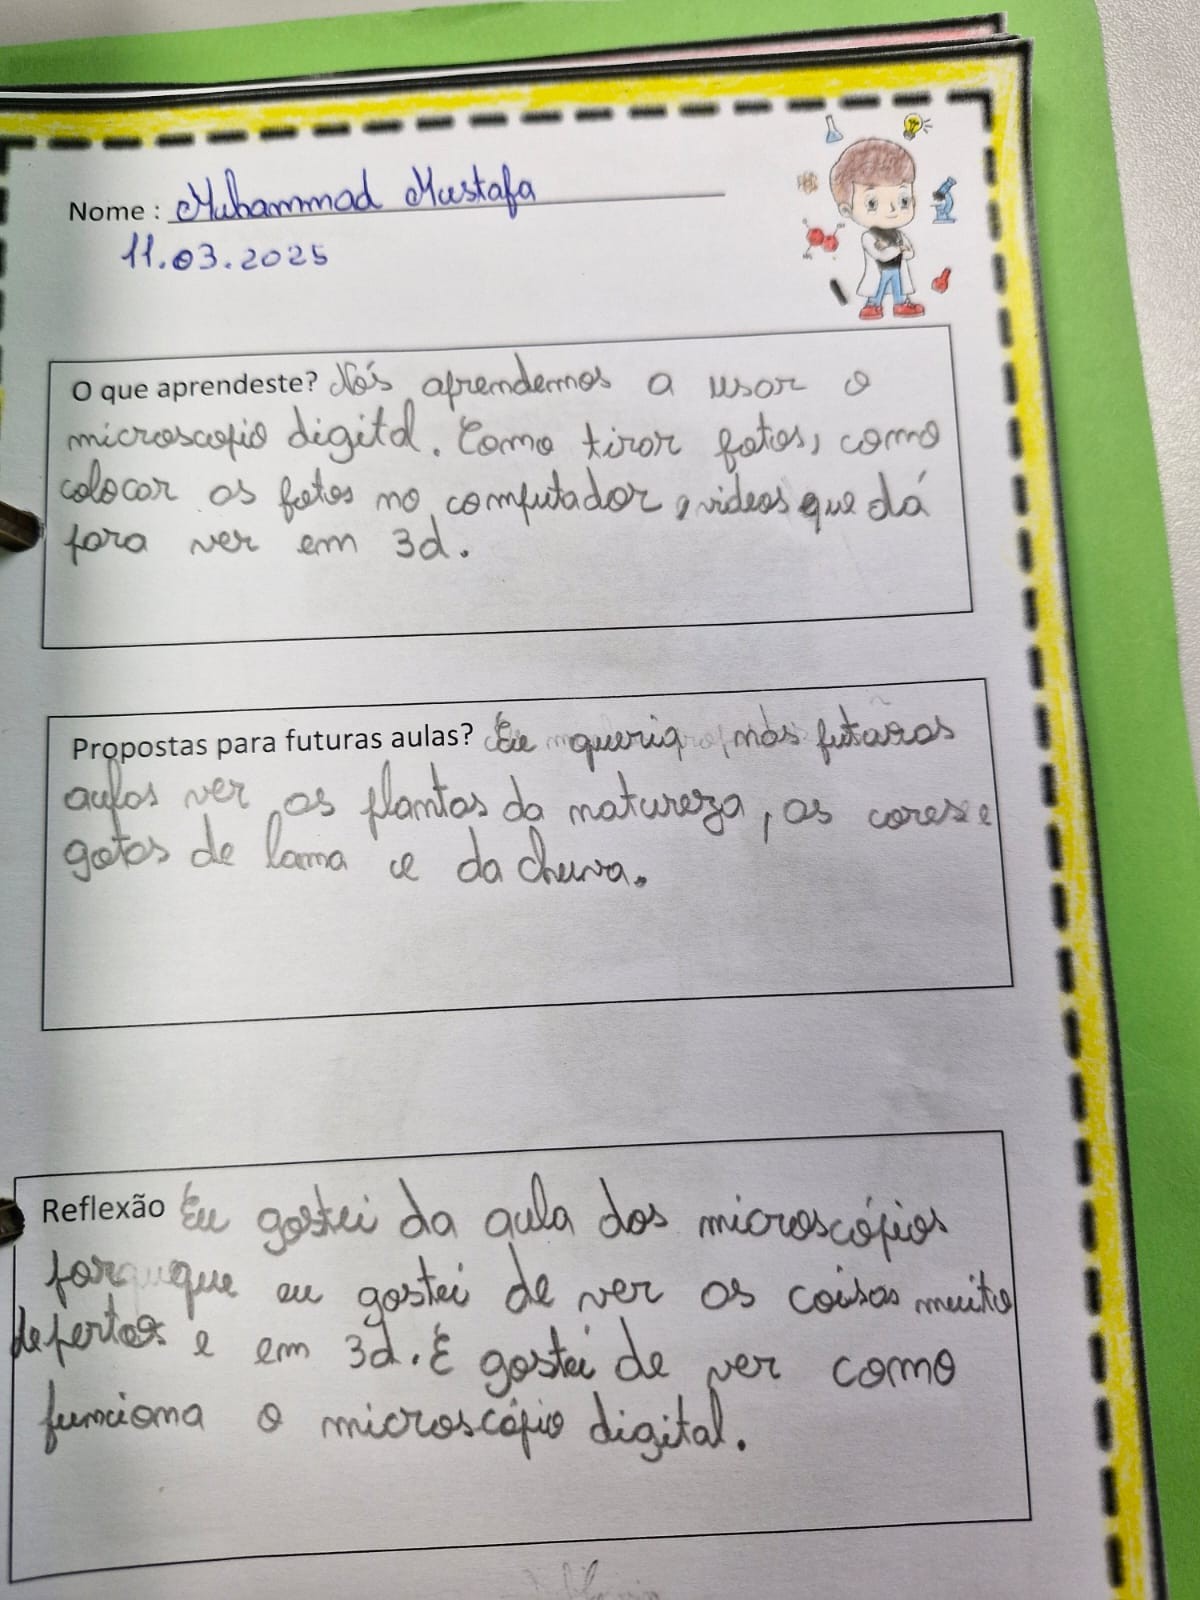 Nome : Muhammad Mustafa
11.03.2025
O que aprendeste? Nós aprendemos a usar o
microscopio digital. Como tirar fotos, como
colocar as fotos no computador, videos que dá
para ver em 3d.
Propostas para futuras aulas? Eu queria nas futuras
aulas ver as plantas da natureza, as cores e
gotas de lama e da chuva.
Reflexão Eu gostei da aula dos microscópios
porque eu gostei de ver as coisas muito
de pertos e em 3d. E gostei de ver como
funciona o microscópio digital.